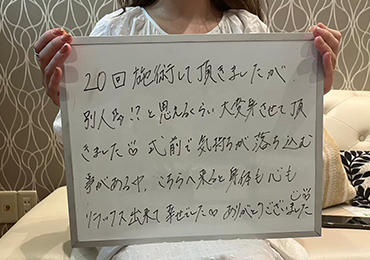 20回施術して頂きましたが
別人級!?と思えるくらい大変身させて頂
きました♡式前で気持ちが落ち込む
事があるや、こちらへ来ると身体も心も
リラックス出来て幸せでした♡ありがとうございました